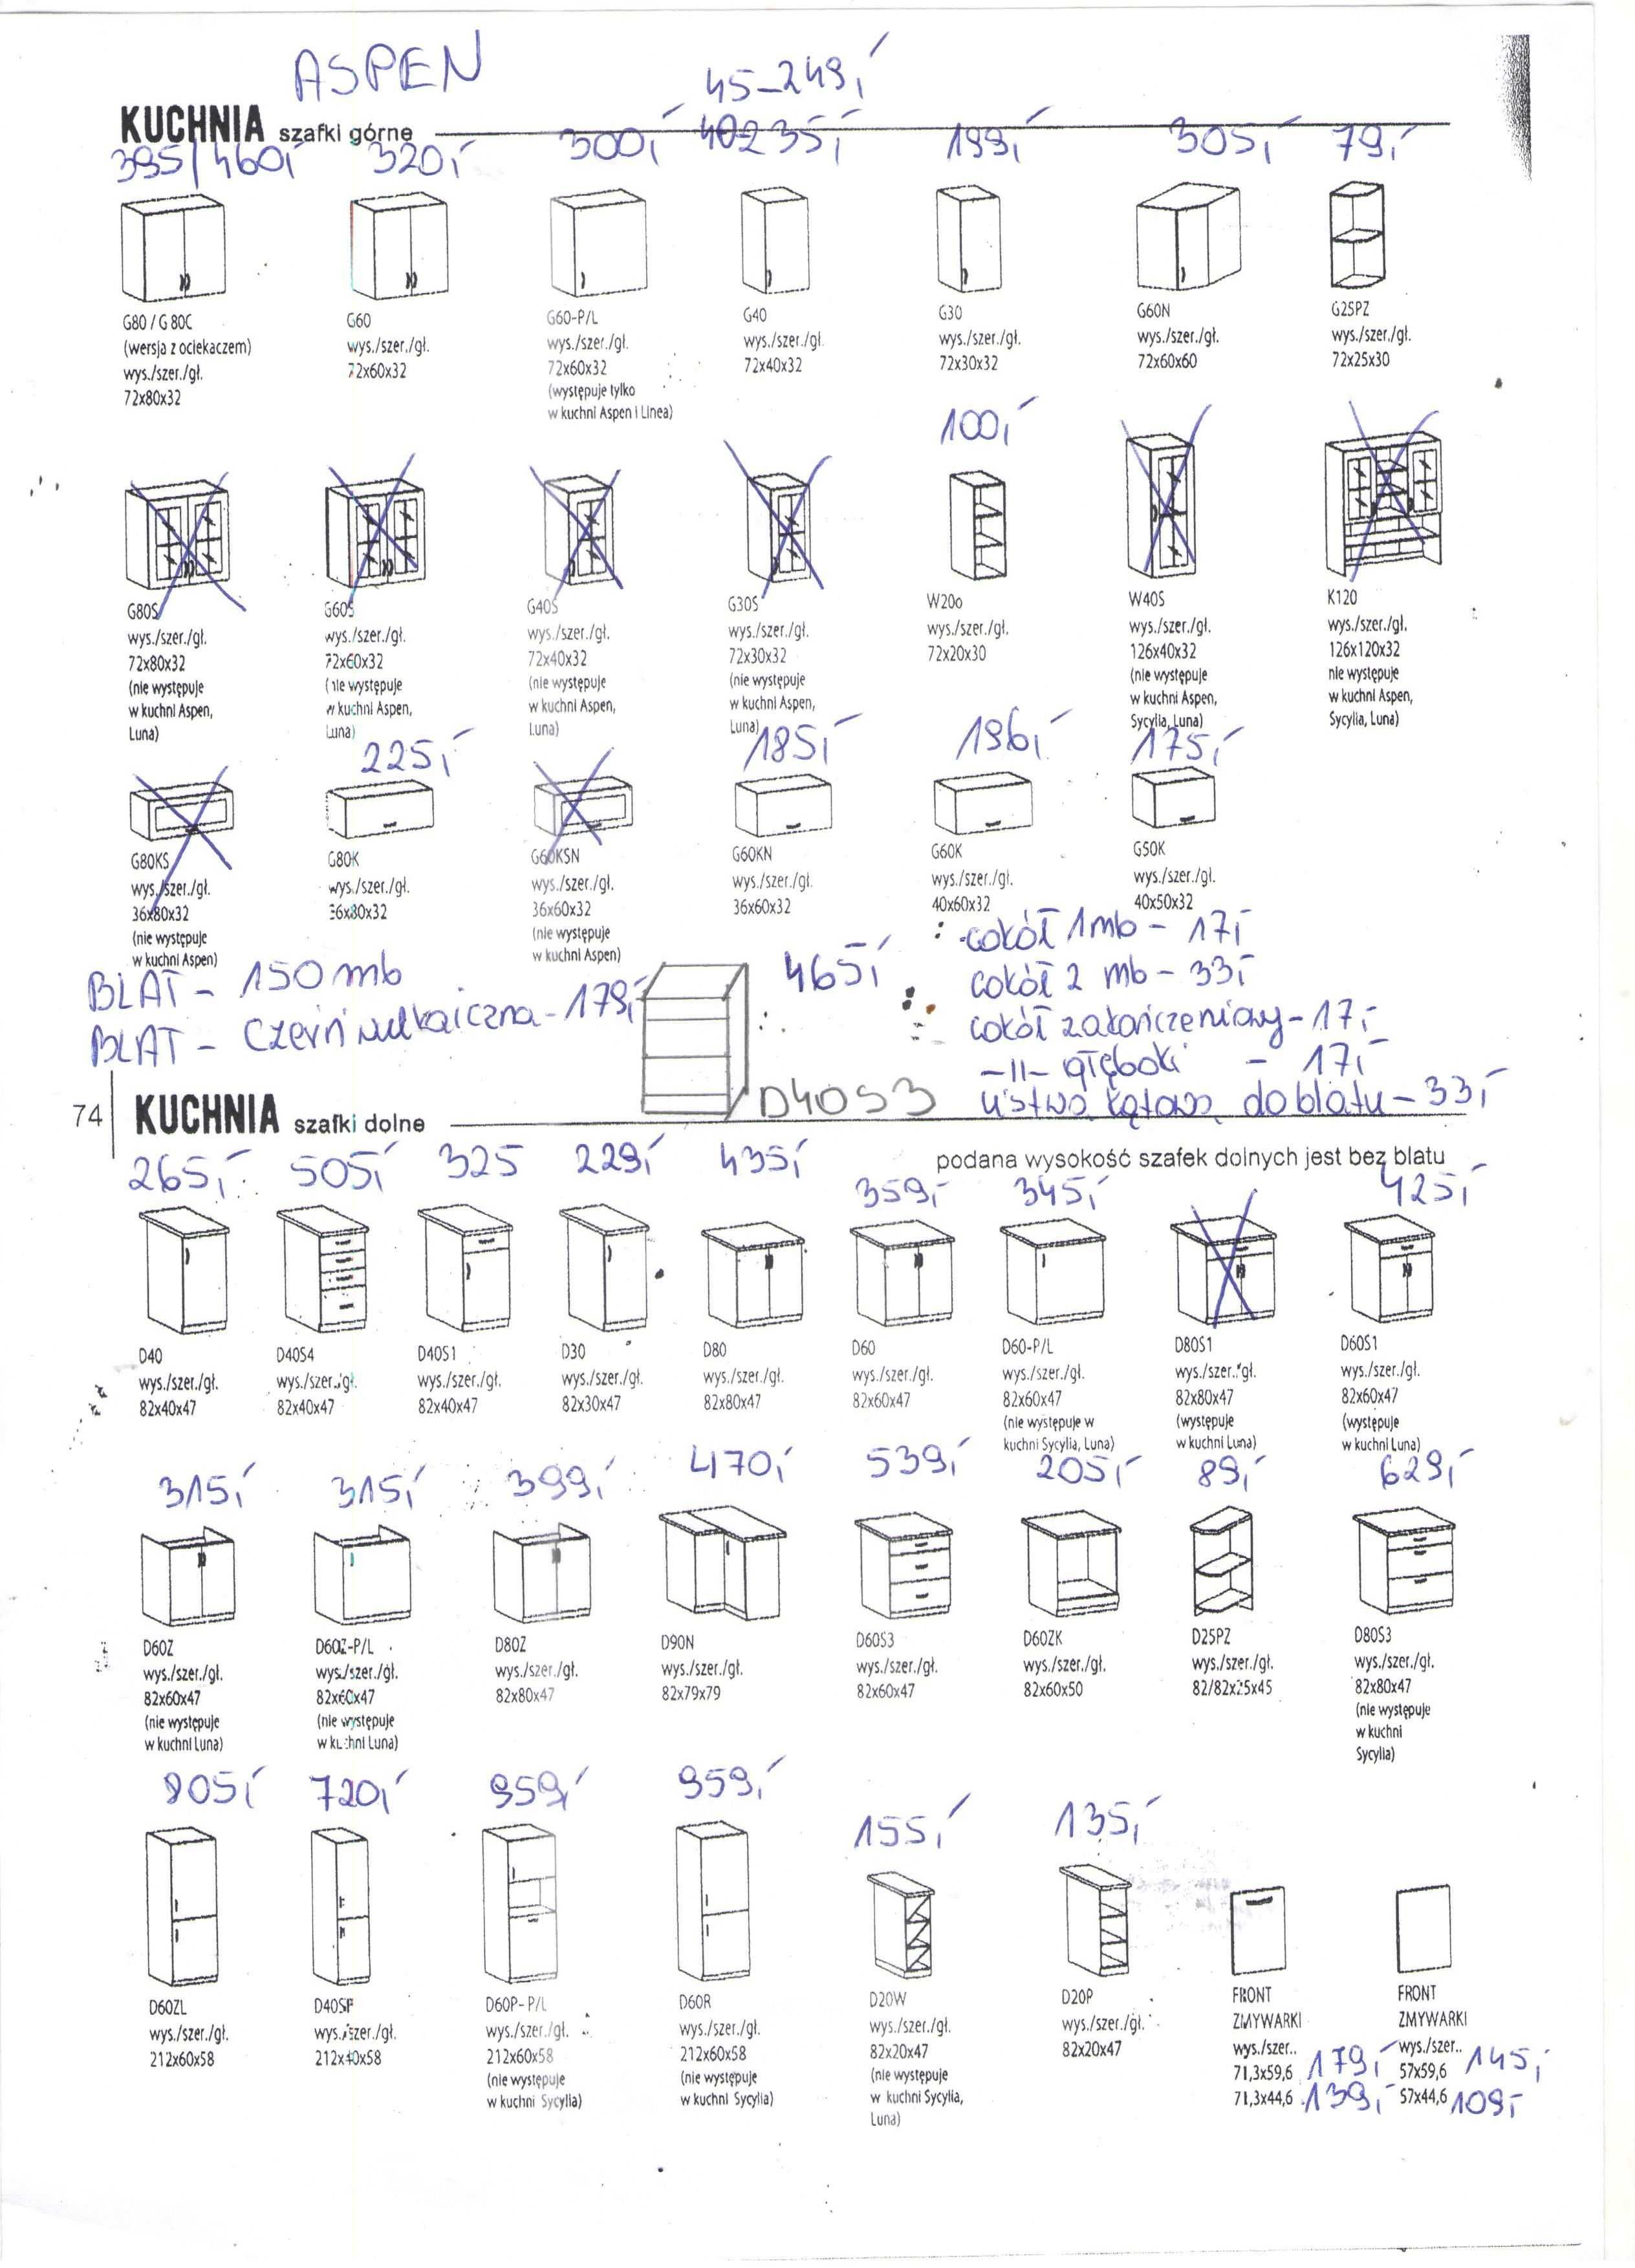 ASPEN
45-249,-
KUCHNIA szafki górne
395/460,- 320,- 300,- 40-235,- 199,- 305,- 79,-
G80 / G 80C
(wersja z ociekaczem)
wys./szer./gł.
72x80x32
G60
wys./szer./gł.
72x60x32
G60-P/L
wys./szer./gł.
72x60x32
(występuje tylko
w kuchni Aspen i Linea)
G40
wys./szer./gł.
72x40x32
G30
wys./szer./gł.
72x30x32
G60N
wys./szer./gł.
72x60x60
G25PZ
wys./szer./gł.
72x25x30
100,-
G80S
wys./szer./gł.
72x80x32
(nie występuje
w kuchni Aspen,
Luna)
G60S
wys./szer./gł.
72x60x32
(nie występuje
w kuchni Aspen,
Luna)
G40S
wys./szer./gł.
72x40x32
(nie występuje
w kuchni Aspen,
Luna)
G30S
wys./szer./gł.
72x30x32
(nie występuje
w kuchni Aspen,
Luna)
W20o
wys./szer./gł.
72x20x30
W40S
wys./szer./gł.
126x40x32
(nie występuje
w kuchni Aspen,
Sycylia, Luna)
K120
wys./szer./gł.
126x120x32
nie występuje
w kuchni Aspen,
Sycylia, Luna)
225,- 185,- 196,- 175,-
G80KS
wys./szer./gł.
36x80x32
(nie występuje
w kuchni Aspen)
G80K
wys./szer./gł.
36x80x32
G60KSN
wys./szer./gł.
36x60x32
(nie występuje
w kuchni Aspen)
G60KN
wys./szer./gł.
36x60x32
G60K
wys./szer./gł.
40x60x32
G50K
wys./szer./gł.
40x50x32
BLAT - 150 mb
BLAT - Czerń wulkaiczna - 179,-
465,-
D40S3
cokół 1mb - 17,-
cokół 2 mb - 33,-
cokół zakończeniowy - 17,-
-II- głęboki - 17,-
listwa kątowa do blatu - 33,-
74
KUCHNIA szafki dolne
podana wysokość szafek dolnych jest bez blatu
265,- 505,- 325 229,- 435,- 359,- 345,- 425,-
D40
wys./szer./gł.
82x40x47
D40S4
wys./szer./gł.
82x40x47
D40S1
wys./szer./gł.
82x40x47
D30
wys./szer./gł.
82x30x47
D80
wys./szer./gł.
82x80x47
D60
wys./szer./gł.
82x60x47
D60-P/L
wys./szer./gł.
82x60x47
(nie występuje w
kuchni Sycylia, Luna)
D80S1
wys./szer./gł.
82x80x47
(występuje
w kuchni Luna)
D60S1
wys./szer./gł.
82x60x47
(występuje
w kuchni Luna)
315,- 315,- 399,- 470,- 539,- 205,- 89,- 629,-
D60Z
wys./szer./gł.
82x60x47
(nie występuje
w kuchni Luna)
D60Z-P/L
wys./szer./gł.
82x60x47
(nie występuje
w kuchni Luna)
D80Z
wys./szer./gł.
82x80x47
D90N
wys./szer./gł.
82x79x79
D60S3
wys./szer./gł.
82x60x47
D60ZK
wys./szer./gł.
82x60x50
D25PZ
wys./szer./gł.
82/82x25x45
D80S3
wys./szer./gł.
82x80x47
(nie występuje
w kuchni
Sycylia)
905,- 720,- 959,- 959,- 155,- 135,-
D60ZL
wys./szer./gł.
212x60x58
D40SP
wys./szer./gł.
212x40x58
D60P-P/L
wys./szer./gł.
212x60x58
(nie występuje
w kuchni Sycylia)
D60R
wys./szer./gł.
212x60x58
(nie występuje
w kuchni Sycylia)
D20W
wys./szer./gł.
82x20x47
(nie występuje
w kuchni Sycylia,
Luna)
D20P
wys./szer./gł.
82x20x47
FRONT
ZMYWARKI
wys./szer..
71,3x59,6 179,-
71,3x44,6 139,-
FRONT
ZMYWARKI
wys./szer..
57x59,6 145,-
57x44,6 109,-